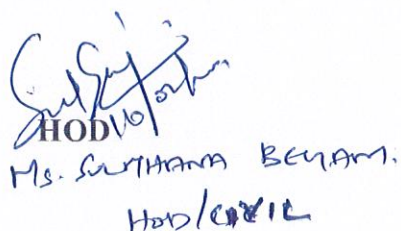 HOD
Ms. SULTHANA BEGAM.
HOD/CIVIL